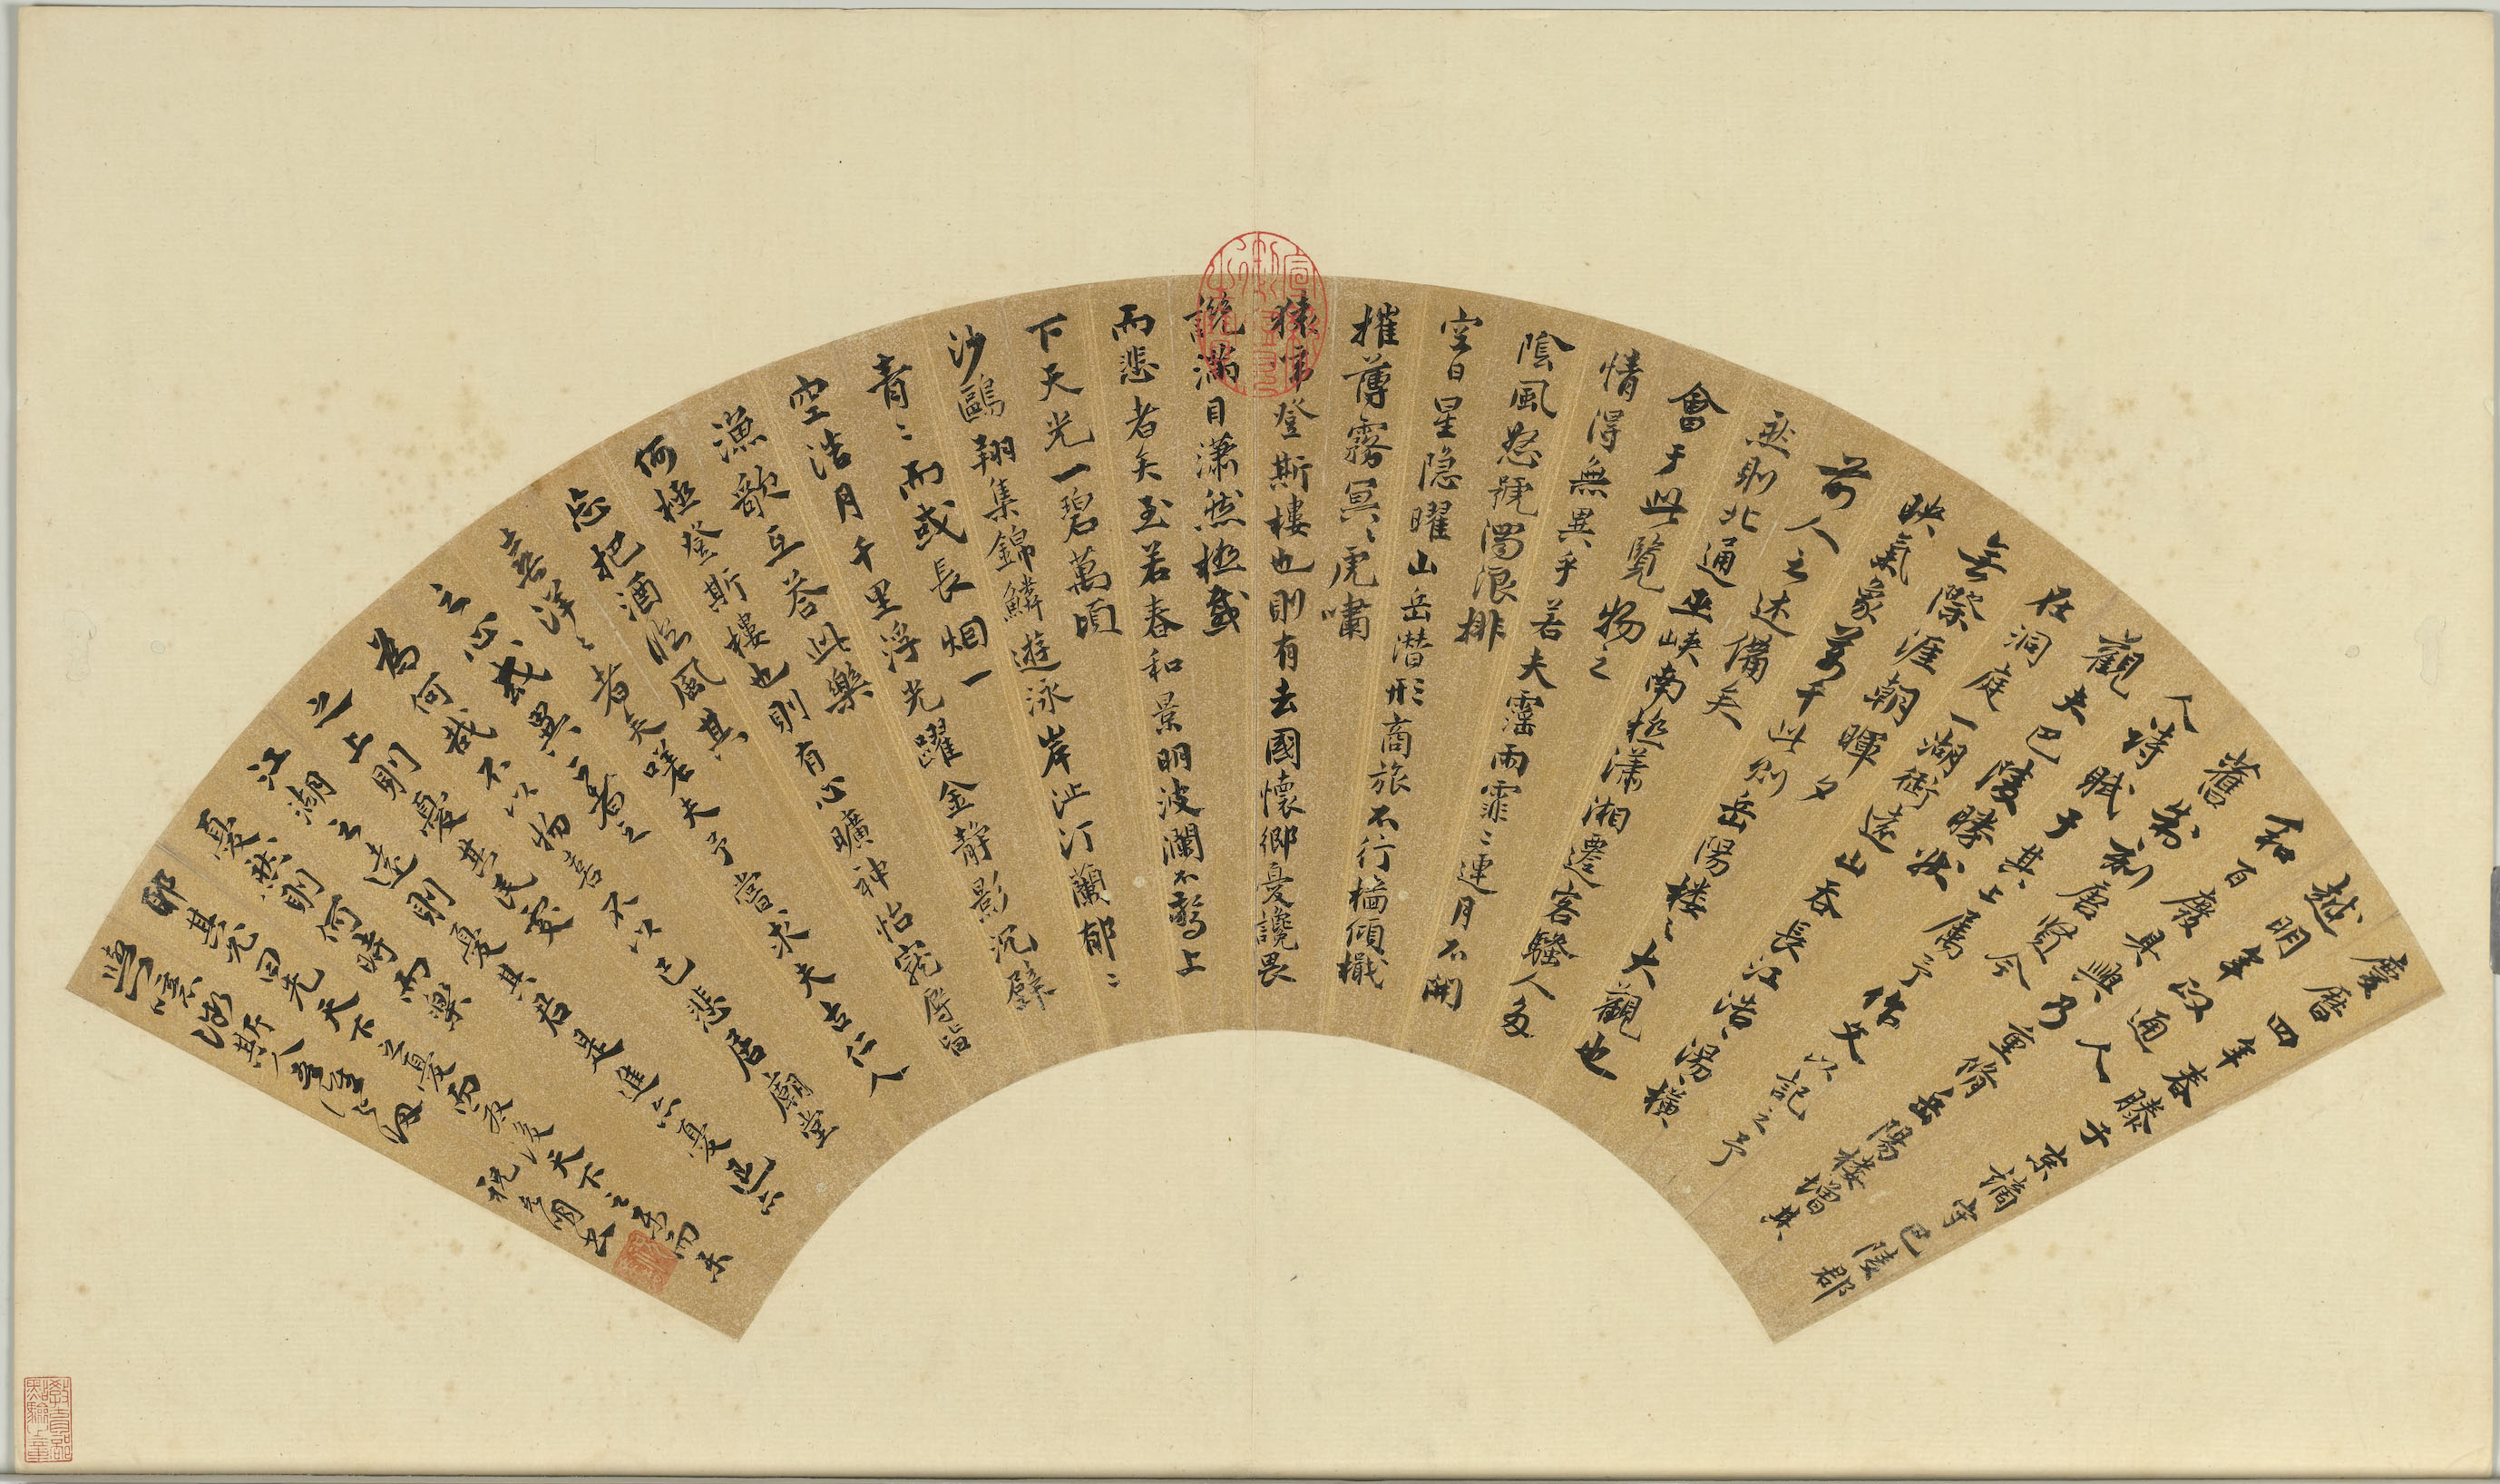 慶曆四年春滕子京謫守巴陵郡
越明年政通人
和百廢具興乃重脩岳陽樓增其
舊制唐賢今
人詩賦于其上屬予作文以記之予
觀夫巴陵勝狀
在洞庭一湖銜遠山吞長江浩浩湯湯橫
無際涯朝暉夕
映氣象萬千此則岳陽樓之大觀也
前人之述備矣
然則北通巫峽南極瀟湘遷客騷人多
會于此覽物之
情得無異乎若夫霪雨霏〻連月不開
陰風怒號濁浪排
空日星隱曜山岳潛形商旅不行檣傾檝
摧薄霧冥〻虎嘯
猿啼登斯樓也則有去國懷鄉憂讒畏
譏滿目瀟然極感
而悲者矣至若春和景明波瀾不驚上
下天光一碧萬頃
沙鷗翔集錦鱗遊泳岸沚汀蘭郁〻
青〻而或長烟一
空浩月千里浮光躍金靜影沉璧
漁歌互答此樂
何極登斯樓也則有心曠神怡寵辱皆
忘把酒臨風其
喜洋〻者矣嗟夫予嘗求夫古仁人
之心或異二者之
為何哉不以物喜不以己悲居廟堂
之上則憂其民處
江湖之遠則憂其君是進亦憂退亦
憂然則何時而樂
耶其必曰先天下之憂而憂後天下之樂而樂
歟噫微斯人吾誰與歸
祝允明書
宣統御覽之寶
教育部點驗之章